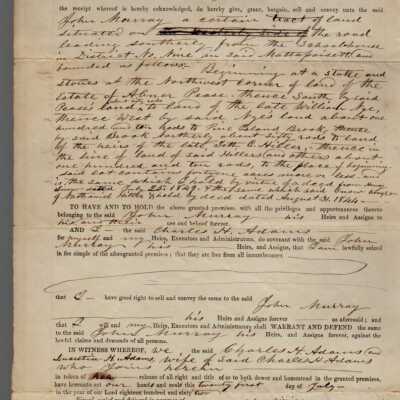 the receipt whereof is hereby acknowledged, do hereby give, grant, bargain, sell and convey unto the said
John Murray a certain tract of land
situated on the Westerly side of the road
leading southerly from the Schoolhouse
in District No. Nine in said Mattapoisett and
bounded as follows. Beginning at a stake and
stones at the Northwest corner of land of the
estate of Abner Pease. Thence South by said
Pease's land to land of the late William Nye,
thence West by said Nye's land about one
hundred and ten rods to Pine Island Brook, thence
by said Brook Northerly about sixty rods to land
of the heirs of the late Seth C. Hiller, thence in
the line of land of said Hillers and others about
one hundred and ten rods, to the place of beginning
said lot contains fourteen acres more or less and
is the same which by virtue of a deed from
dated July 25th 1849
of Nathaniel by deed dated August 31. 1844.
TO HAVE AND TO HOLD the above granted premises with all the privileges and appurtenances thereto
belonging to the said John Murray his Heirs and Assigns to
his and their use and behoof forever.
AND I the said Charles H. Adams
for myself and my Heirs, Executors and Administrators, do covenant with the said John
Murray his Heirs and Assigns, that I am lawfully seized
in fee simple of the aforegranted premises; that they are free from all incumbrances
that I have good right to sell and convey the same to the said
John Murray
his Heirs and Assigns forever as aforesaid; and
that I will and my Heirs, Executors and Administrators shall WARRANT AND DEFEND the same
to the said John Murray his Heirs and Assigns forever, against the
lawful claims and demands of all persons.
IN WITNESS WHEREOF, we the said Charles H. Adams and
H. Adams wife of said Charles H. Adams
who joins herein
in token of her release of all right and title of or to both dower and homestead in the granted premises,
have hereunto set our hands and seals this twenty first day of July
in the year of our Lord eighteen hundred and sixty two